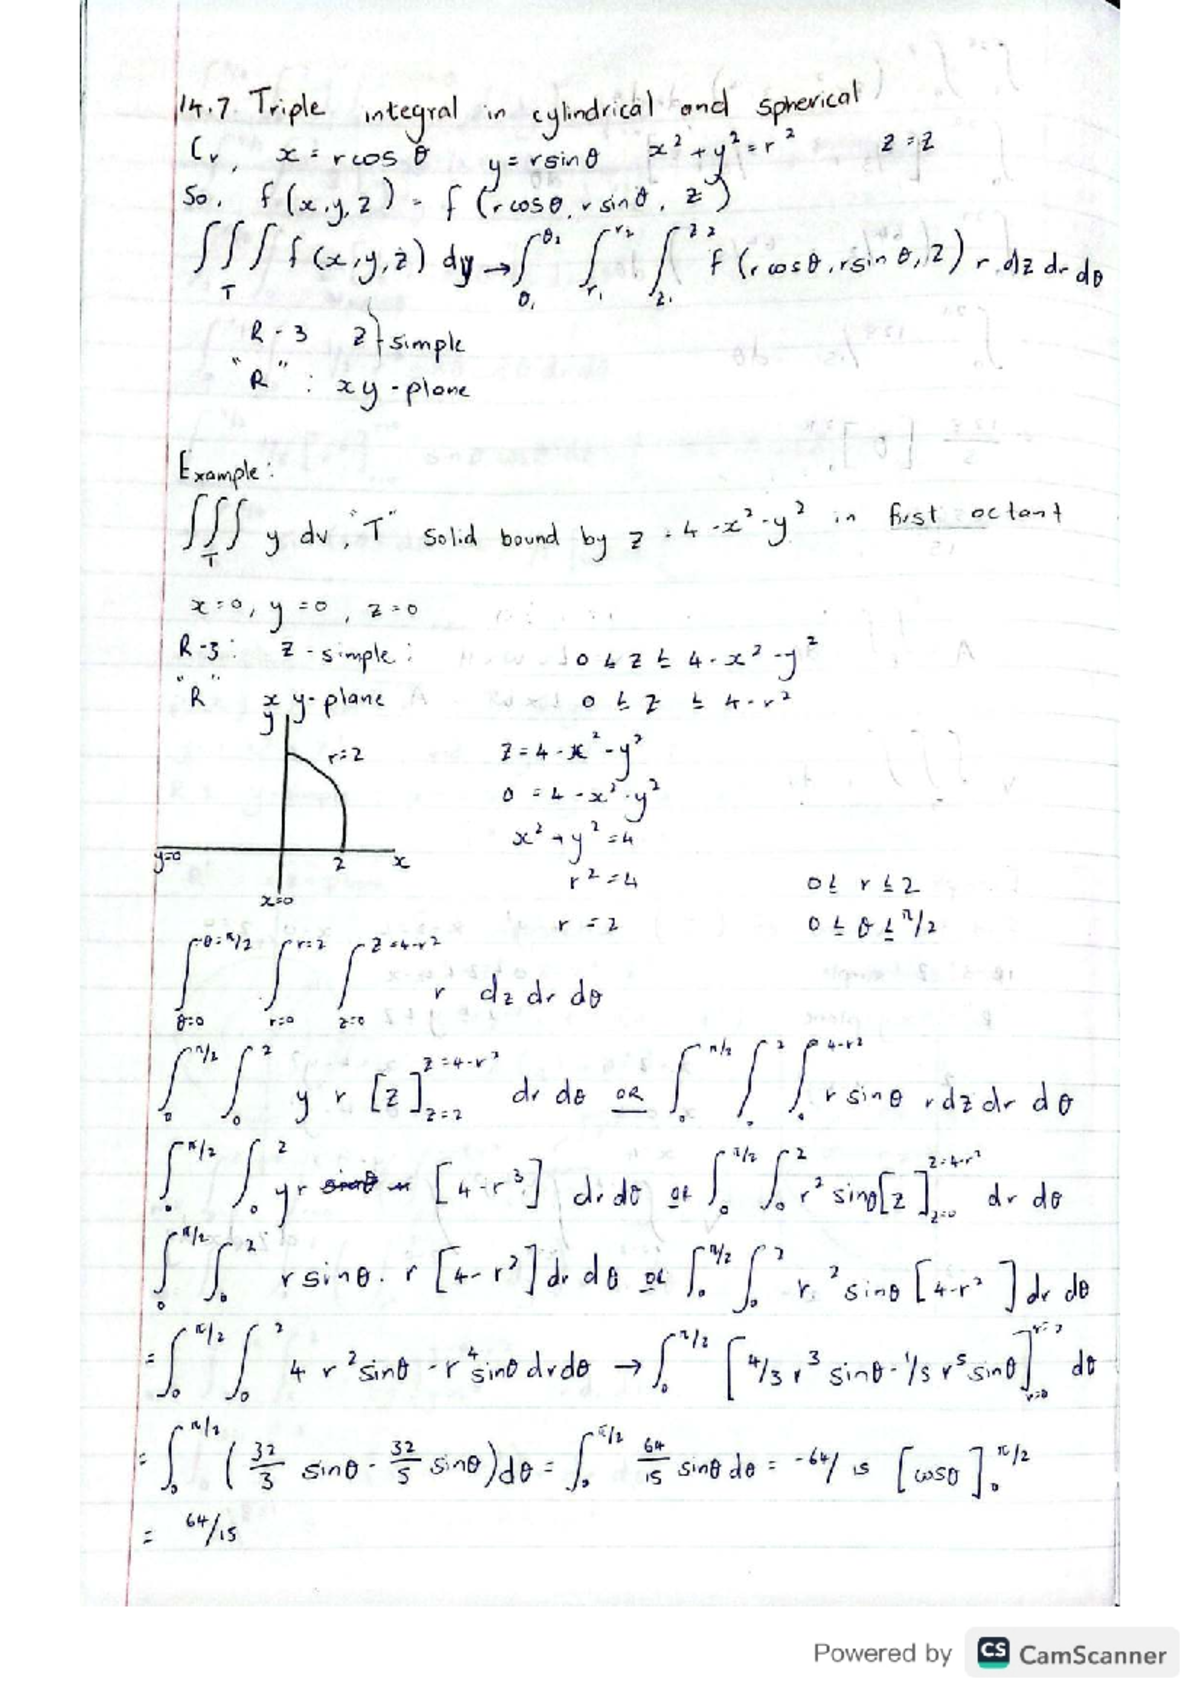 14.7. Triple integral in cylindrical and spherical
Cr, x = rcos θ y = rsinθ x² + y² = r² z = z
So, f(x,y,z) = f(rcosθ, rsinθ, z)
∫∫∫ f(x,y,z) dy → ∫ ∫ ∫ f(rcosθ, rsinθ, z) r dz dr dθ
T θ₁ θ₂ r₁ r₂ z₁ z₂
R-3 z} simple
"R" : xy-plane
Example:
∫∫∫_T y dv, "T" solid bound by z = 4-x²-y² in first octant
x=0, y=0, z=0
R-3: z-simple: 0 ≤ z ≤ 4-x²-y²
"R" xy-plane 0 ≤ z ≤ 4-r²
y r=2 z = 4-x²-y²
0 = 4-x²-y²
x²+y²=4
y=0 2 x
r²=4 0 ≤ r ≤ 2
x=0
r = 2 0 ≤ θ ≤ π/2
∫_{θ=0}^{θ=π/2} ∫_{r=0}^{r=2} ∫_{z=0}^{z=4-r²} r dz dr dθ
∫_0^{π/2} ∫_0^2 y r [z]_{z=2}^{z=4-r²} dr dθ OR ∫_0^{π/2} ∫_0^2 ∫_0^{4-r²} r sinθ r dz dr dθ
∫_0^{π/2} ∫_0^2 yr [4-r³] dr dθ OR ∫_0^{π/2} ∫_0^2 r² sinθ [z]_{z=0}^{z=4-r²} dr dθ
∫_0^{π/2} ∫_0^2 r sinθ . r [4-r²] dr dθ OR ∫_0^{π/2} ∫_0^2 r² sinθ [4-r²] dr dθ
= ∫_0^{π/2} ∫_0^2 4 r² sinθ - r⁴ sinθ dr dθ → ∫_0^{π/2} [4/3 r³ sinθ - 1/5 r⁵ sinθ]_{r=0}^{r=2} dθ
= ∫_0^{π/2} (32/3 sinθ - 32/5 sinθ) dθ = ∫_0^{π/2} 64/15 sinθ dθ = -64/15 [cosθ]_0^{π/2}
= 64/15
Powered by CS CamScanner